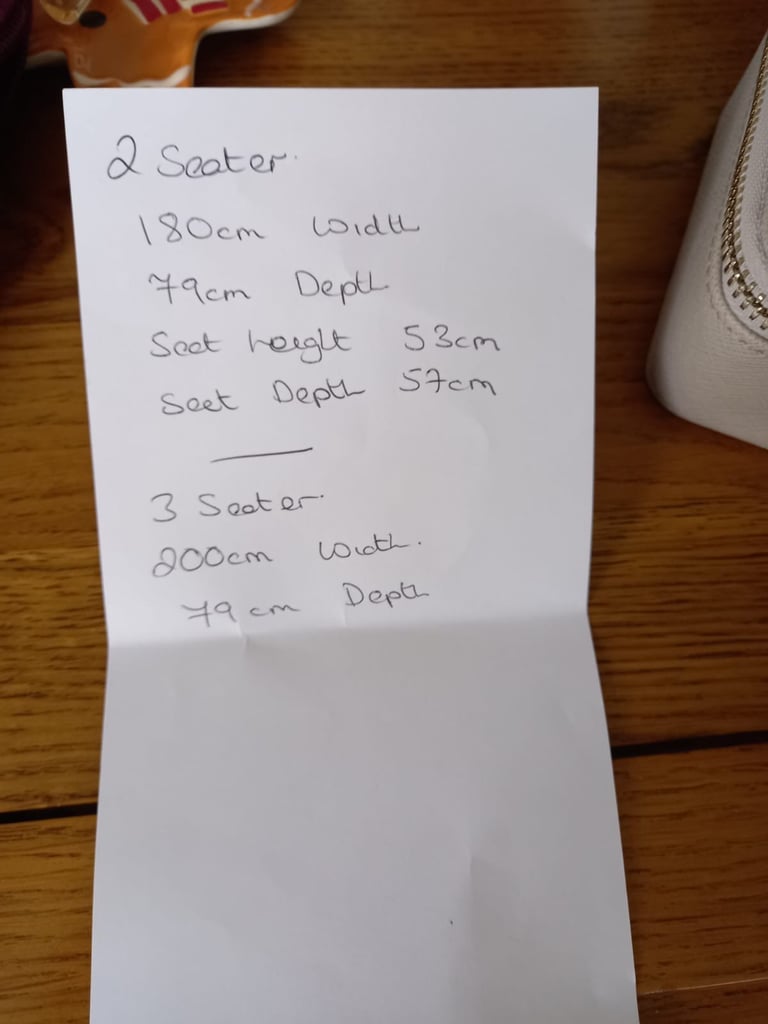 2 Seater.
180cm Width
79cm Depth
Seat height 53cm
Seat Depth 57cm
3 Seater.
200cm Width.
79cm Depth